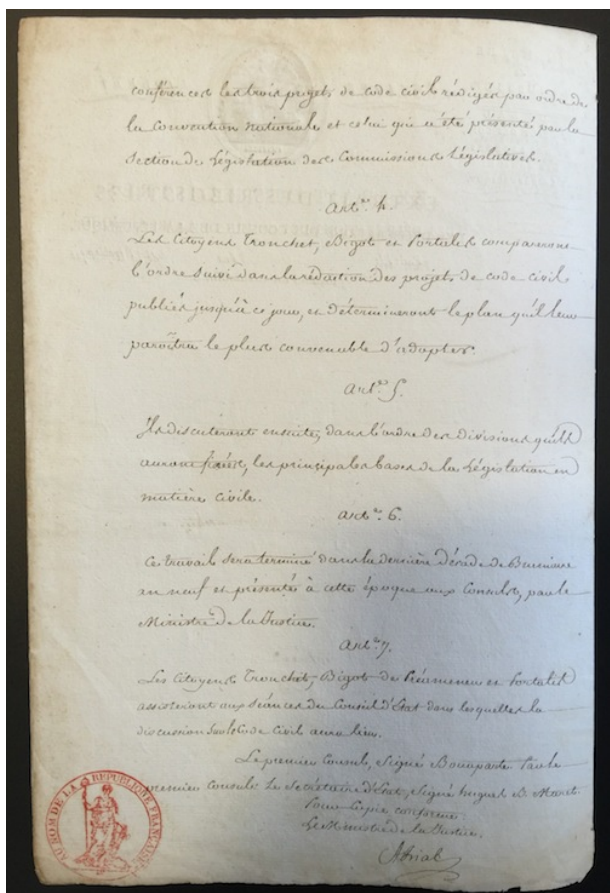 conférences les trois projets de code civil rédigés par ordre de
la Convention nationale et celui qui a été présenté par la
Section de Législation des Commissions Législatives.
Art.e 4.
Les Citoyens Tronchet, Bigot et Portalis compareront
l'ordre suivi dans la rédaction des projets de code civil
publiés jusqu'à ce jour, et détermineront le plan qu'il leur
paroîtra le plus convenable d'adopter.
Art.e 5.
Ils discuteront ensuite, dans l'ordre des divisions qu'ils
auront fixées, les principales bases de la Législation en
matière civile.
Art.e 6.
Ce travail sera terminé dans la dernière décade de Brumaire
an neuf et présenté à cette époque aux Consuls, par le
Ministre de la Justice.
Art.e 7.
Les Citoyens Tronchet, Bigot de Préameneu et Portalis
assisteront aux séances du Conseil d'État dans lesquelles la
discussion sur le Code Civil aura lieu.
Le premier Consul, signé Bonaparte Par le
premier Consul: Le Secrétaire d'État, signé hugues B. Maret.
Pour Copie conforme
Le Ministre de la Justice,
Abrial
AU NOM DE LA REPUBLIQUE FRANÇAISE